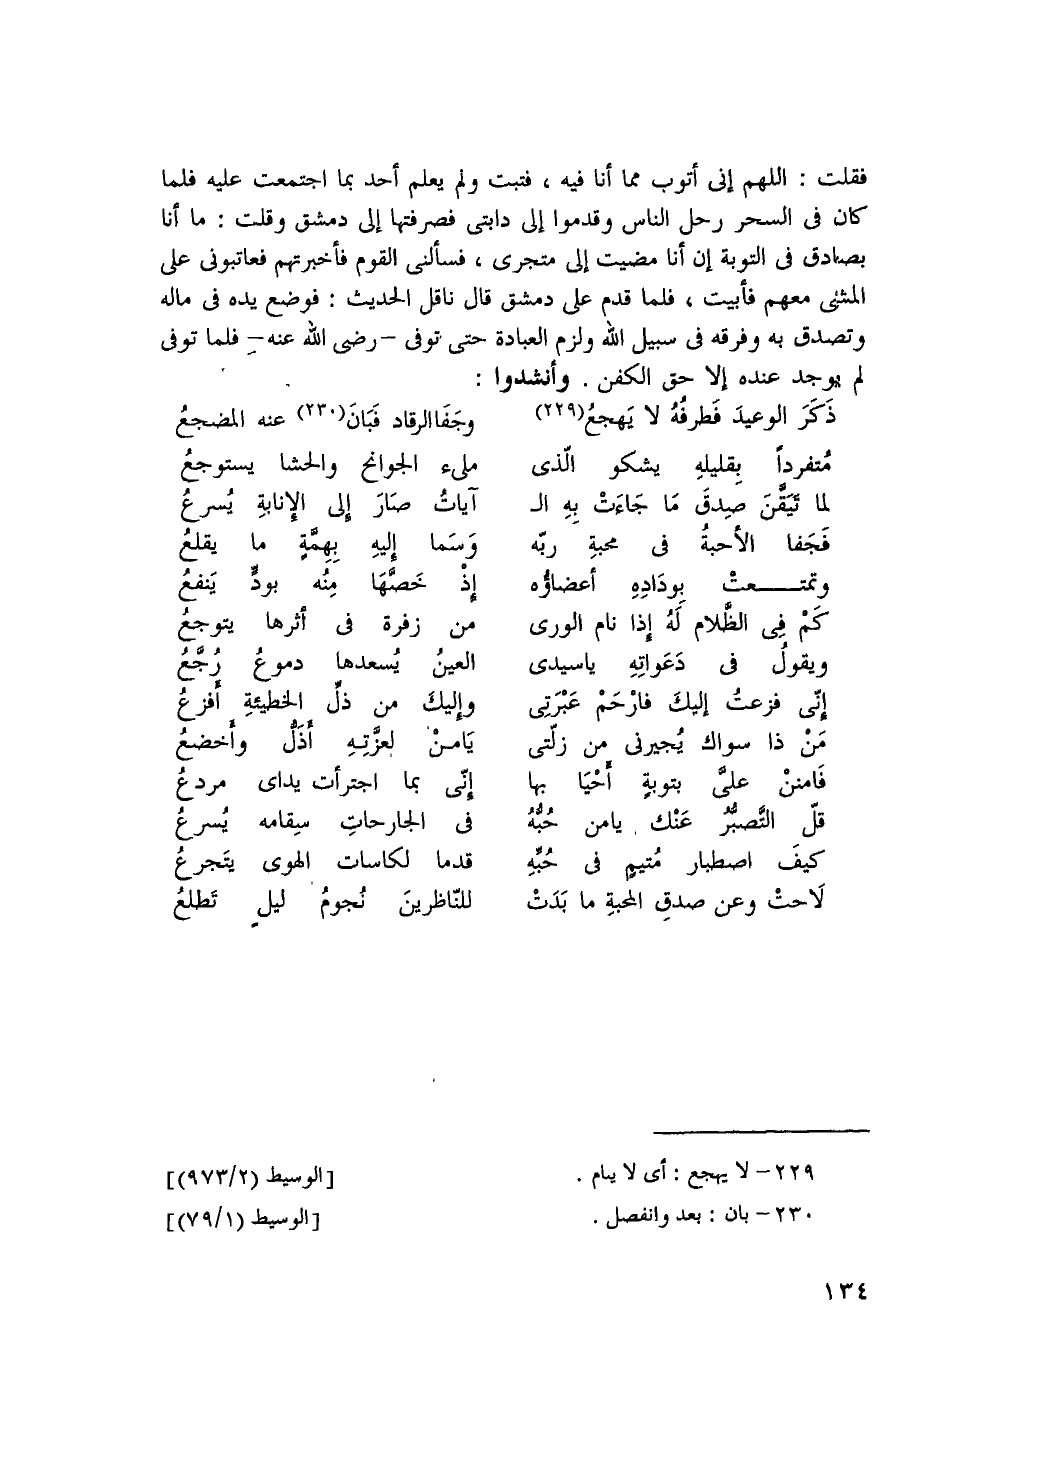 فقلت : اللهم إنى أتوب مما أنا فيه ، فتبت ولم يعلم أحد بما اجتمعت عليه فلما
كان فى السحر رحل الناس وقدموا إلى دابتى فصرفتها إلى دمشق وقلت : ما أنا
بصادق فى التوبة إن أنا مضيت إلى متجرى ، فسألنى القوم فأخبرتهم فعاتبونى على
المشى معهم فأبيت ، فلما قدم على دمشق قال ناقل الحديث : فوضع يده فى ماله
وتصدق به وفرقه فى سبيل الله ولزم العبادة حتى توفى –رضى الله عنه– فلما توفى
لم يوجد عنده إلا حق الكفن . وأنشدوا :
ذَكَرَ الوعيدَ فَطرفُهُ لا يَهجعُ(٢٢٩) وجَفَا الرقاد فَبَانَ(٢٣٠) عنه المضجعُ
مُتفرداً بِقليلهِ يشكو الّذى ملىء الجوانح والحشا يستوجعُ
لما تَيَقَّنَ صِدقَ مَا جَاءَتْ بِهِ الـ آياتُ صَارَ إلى الإنابةِ يُسرعُ
فَجَفا الأحبةُ فى محبةِ ربّه وَسَما إليهِ بِهِمَّةٍ ما يقلعُ
وتمتـــعتْ بِودَادِهِ أعضاؤُه إذْ خَصَّهَا مِنُه بودٍّ يَنفعُ
كَمْ فِى الظَّلام لَهُ إذا نام الورى من زفرة فى أثرها يتوجعُ
ويقولُ فى دَعَواتِهِ ياسيدى العينُ يُسعدها دموعُ رُجَّعُ
إنّى فزعتُ إليكَ فارْحَمْ عَبْرَتِى وإليكَ من ذلِّ الخطيئةِ أَفزعُ
مَنْ ذا سواك يُجيرنى من زلّتى يَامنْ لعزَّتِهِ أَذَلُّ وأَخضعُ
فَامننْ علىَّ بتوبةٍ أَحْيَا بها إنّى بما اجترأت يداى مردعُ
قلّ التَّصبُّرُ عَنْك يامن حُبُّهُ فى الجارحاتِ سِقامه يُسرعُ
كيفَ اصطبار مُتيمٍ فى حُبِّهِ قدما لكاسات الهوى يتَجرعُ
لَاحتْ وعن صدقِ المحبةِ ما بَدَتْ للنّاظرينَ نُجومُ ليلٍ تَطلعُ
٢٢٩– لا يهجع : أى لا ينام . [الوسيط (٩٧٣/٢)]
٢٣٠– بان : بعد وانفصل . [الوسيط (٧٩/١)]
١٣٤